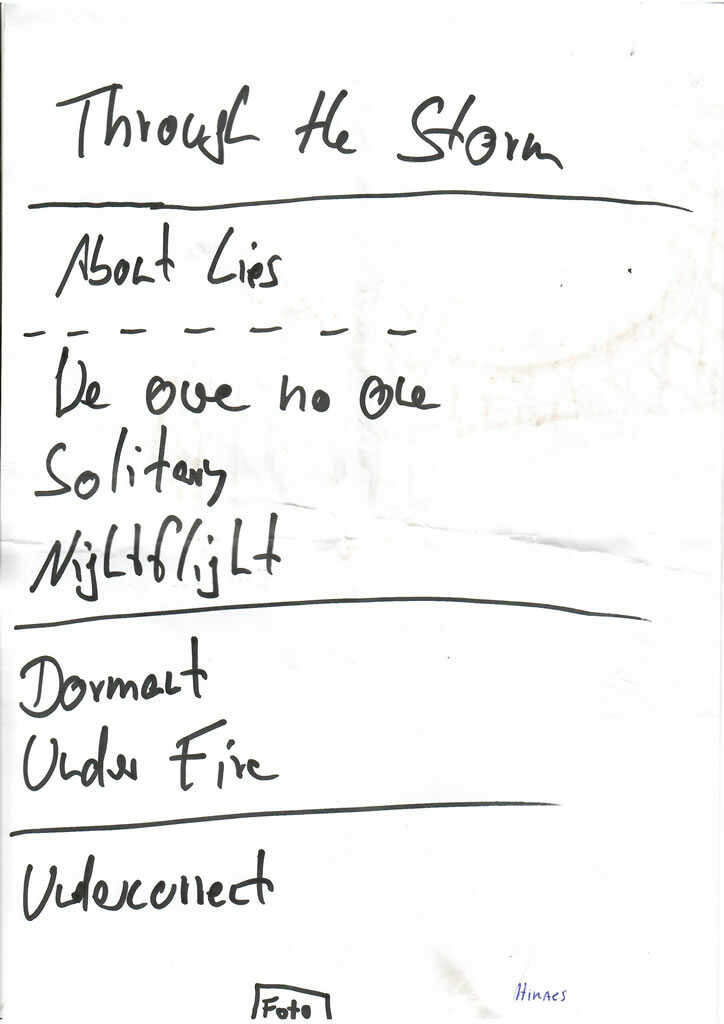 Through the Storm
About Lies
We owe no one
Solitary
Nightflight
Dormant
Under Fire
Undercurrent
Foto
HIRAES